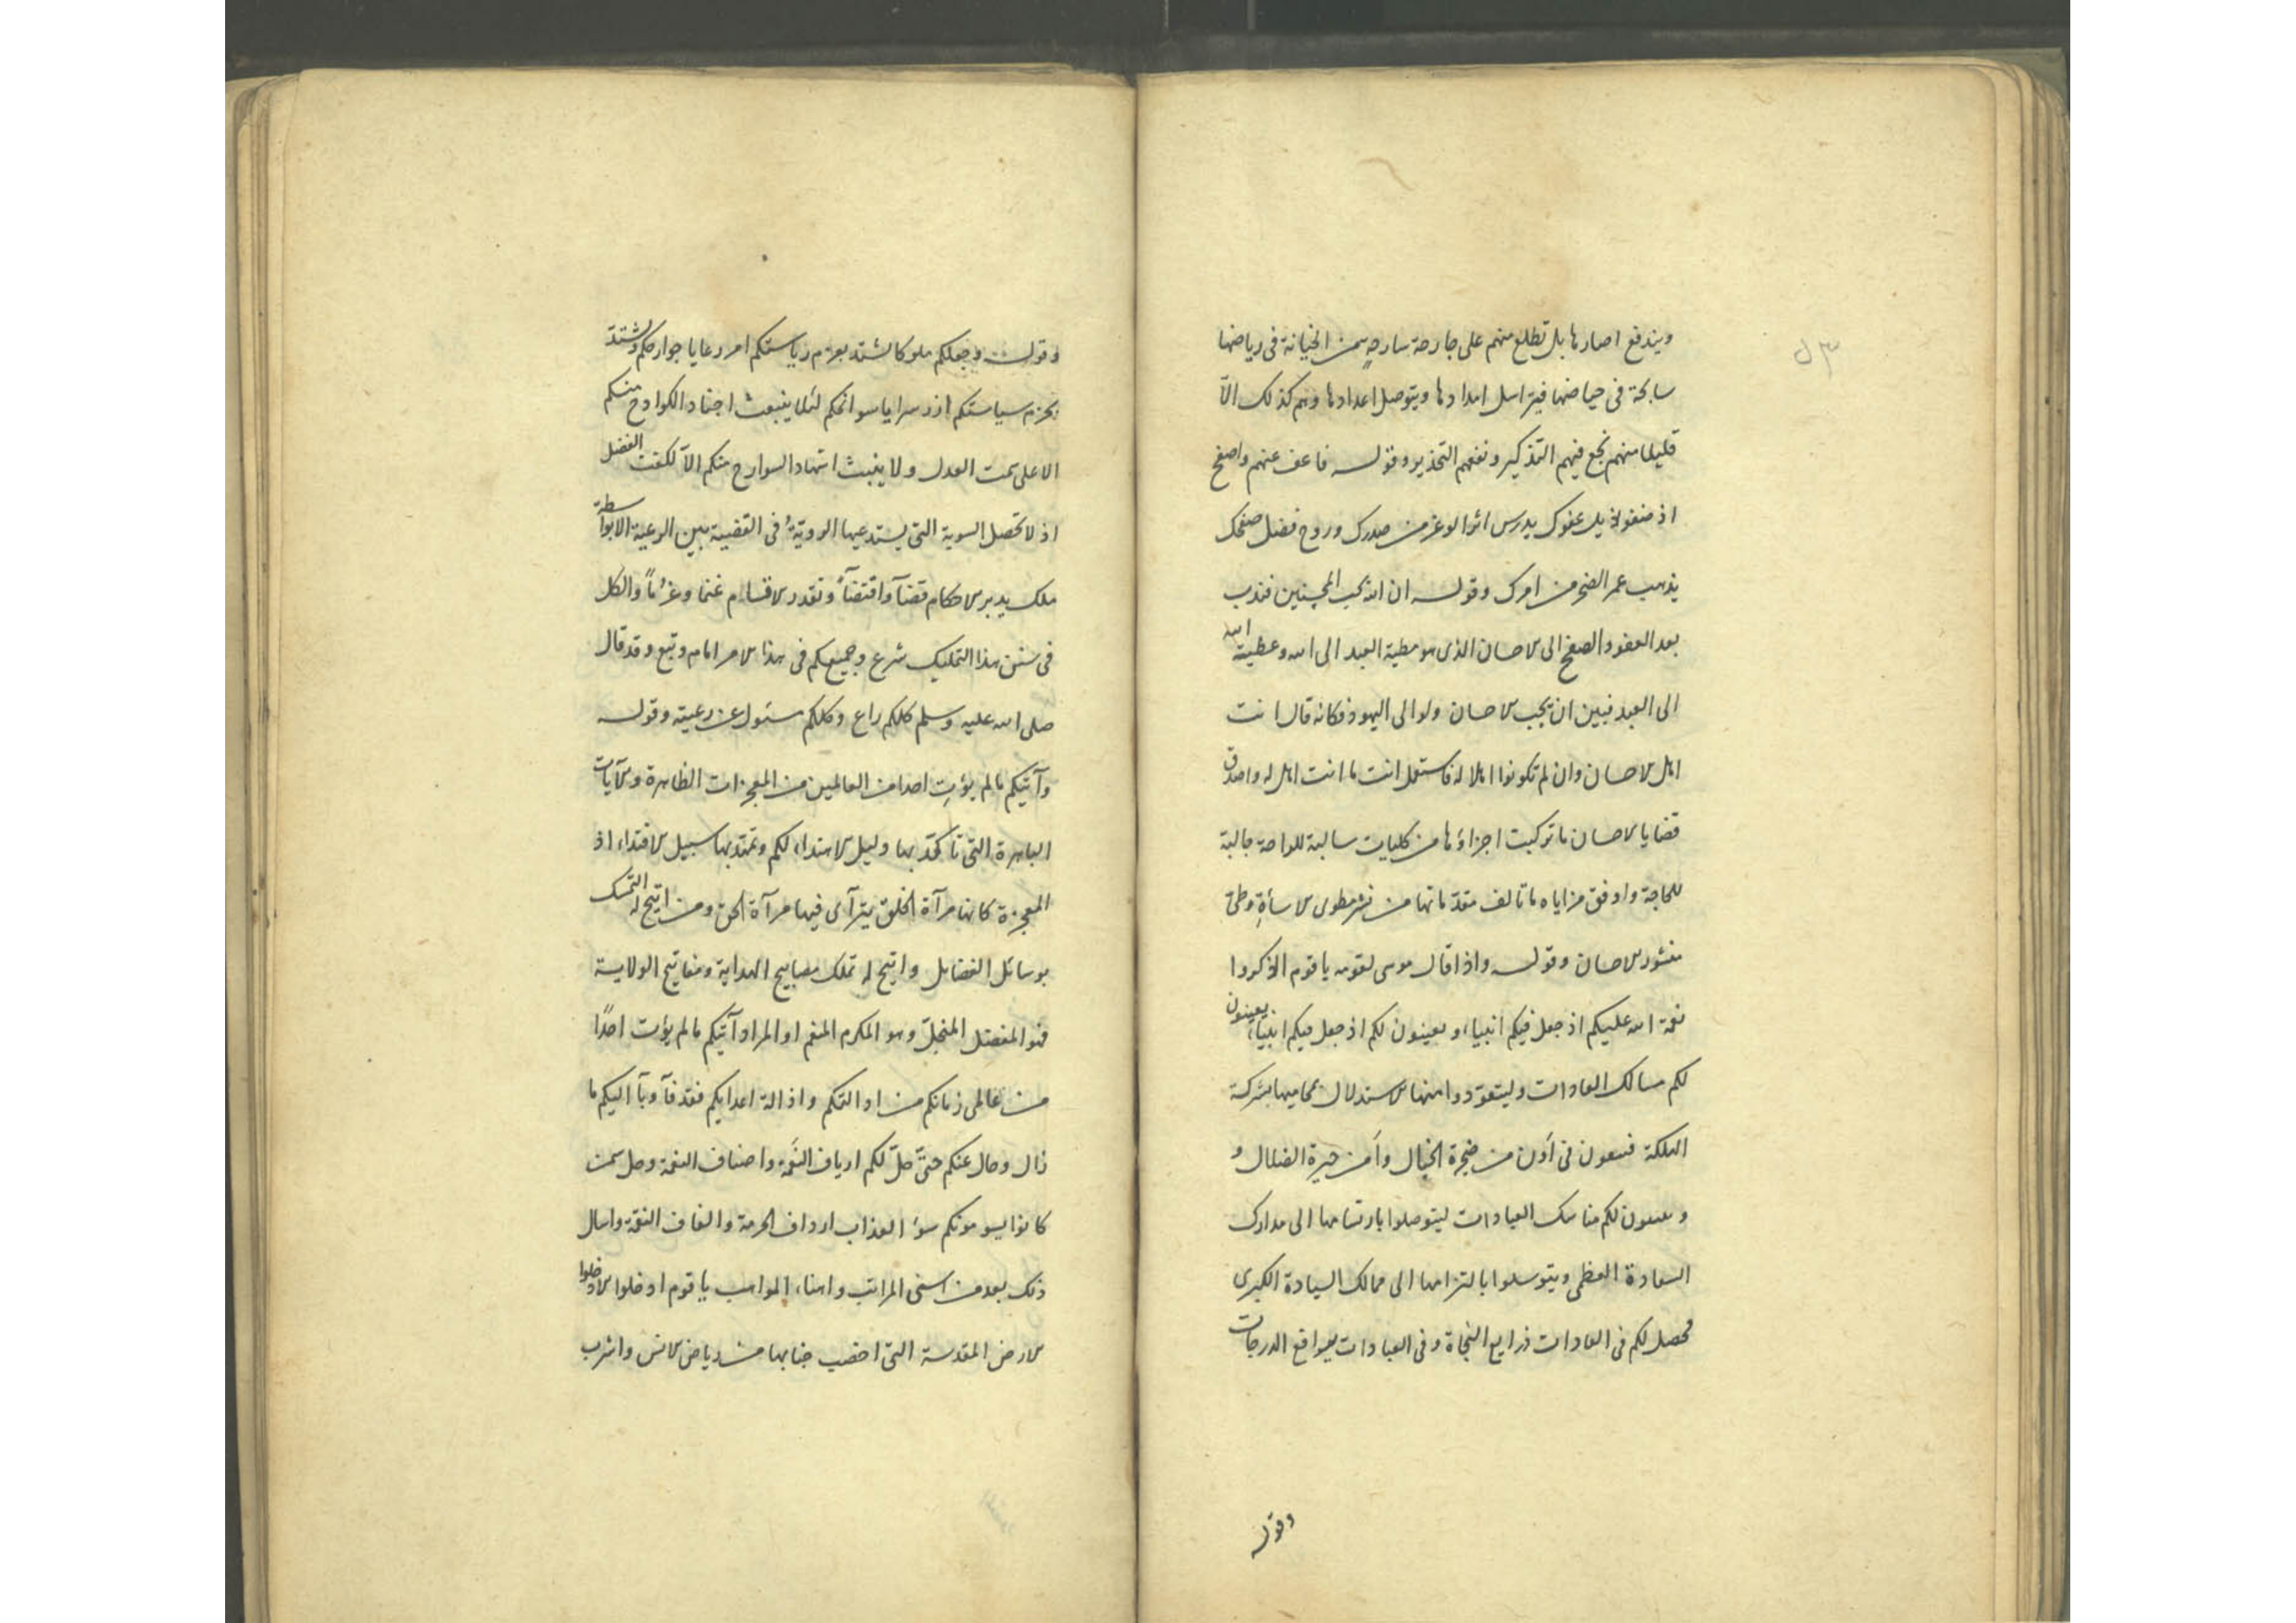 ويندفع اصارها بل تطلع منهم على جارحة سارحة من الخيانة فى رياضها
سابحة فى حياضها فيتراسل امدادها ويتوصل اعدادها وهم كذلك الّا
قليلا منهم نجع فيهم التذكير ونفعهم التحذير وقوله فاعف عنهم واصفح
اذ صفو ذيل عفوك يدرس اثر الوغر من صدرك وروح فضل صفحك
يذهب غمر الضجر من امرك وقوله ان الله يحب المحسنين فندب
بعد العفو والصفح الى الاحسان الذى هو مطية العبد الى الله وعطية الله
الى العبد فبين ان يحب الاحسان ولو الى اليهود فكانه قال انت
اهل الاحسان وان لم تكونوا اهلا له فاستعمل انت ما انت اهل له واصدق
قضايا الاحسان ما تركبت اجزاؤها من كليات سالبة للراحة جالبة
للحاجة واوفق مزاياه ما تالف مقدماتها من نشر مطوى الاسأة وطىّ
منشور الاحسان وقوله واذ اقال موسى لقومه يا قوم اذكروا
نعمة الله عليكم اذ جعل فيكم انبياء و يعينون لكم اذ جعل فيكم انبياء يعينون
لكم مسالك العادات وليتعودوا منها الاستدلال بمحاميها بشركة
الهلكة فى أون من ضجرة الخبال وأمن حيرة الضلال و
و لكم مناسك العبادات ليتوصلوا بارتسامها الى مدارك
السعادة العظمى ويتوسلوا بالتزامها الى ممالك السيادة الكبرى
فحصل لكم فى العادات ذرايع النجاة وفى العبادات مواقع الدرجات
وقوله
وقوله وجعلكم ملوكا لشتد بعزم رياستكم امر رعايا جوارحكم وتشتد
بحزم سياستكم ازر سرايا سوانحكم لئلا ينبعث اجناد الكوادح منكم
الا على سمت العدل ولا ينبث اشهاد السوارح منكم الّا لكفت الفضل
اذ لا تحصل السوية التى يستدعيها الروية فى القضية بين الرعية الا بواسطة
ملك يدبر الاحكام قضآ واقتضآ وتقدر الاقسام غنما وغرُماً والكل
فى سنن هذا التمليك شرع وجميعكم فى هذا الامر امام وتبع وقد قال
صلى الله عليه وسلم كلكم راع وكلكم مسئول عن رعيته وقوله
وآتيكم ما لم يؤتِ احدا من العالمين من المعجزات الظاهرة والآيات
الباهرة التى تاكد بها دليل الاهتداء لكم وتمتد بها سبيل الاقتداء اذ
المعجزة كانها مرآة الخلق يترآى فيها مرآة الحق ومن اتيح له التمسك
بوسائل الفضايل واتيح له تملك مصابيح الهداية ومفاتيح الولاية
فهو المفضل المبجل وهو المكرم المنعم او المراد آتيكم ما لم يؤت احدًا
من عالمى زمانكم من ادالتكم واذالة اعدايكم فقد فآ وبآ اليكم ما
زال وحال عنكم حتّى حلّ لكم ارياف النَعمة واصناف النعمة وحل بمن
كانوا يسومونكم سوءَ العذاب ارداف الحرمة والفاف النقمة واسال
ذلك بعد من اسنى المراتب واهناء المواهب يا قوم ادخلوا ادخلوا
الارض المقدسة التى اخصب جنابها من رياض الانس واشرب